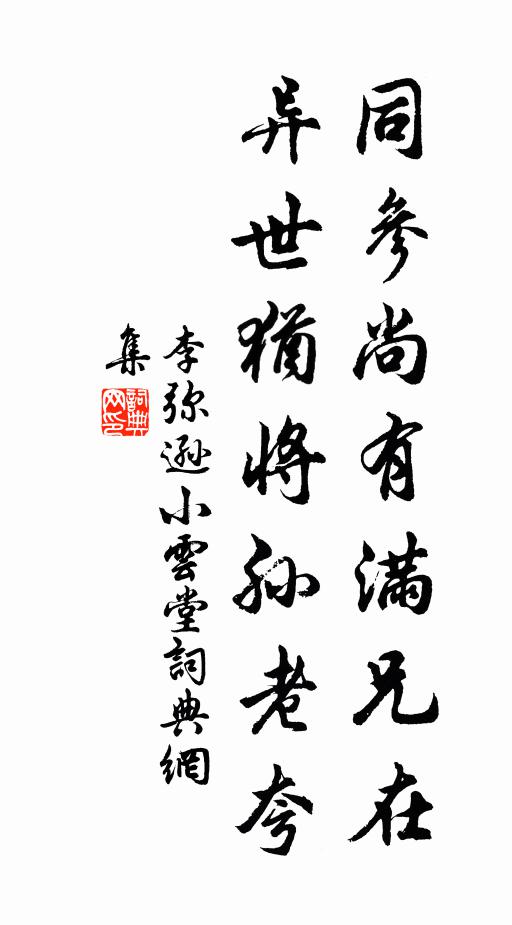 同參尚有滿兄在
异世猶將孙老夸
李弥遜小雲堂詞典網
集
詞典网印